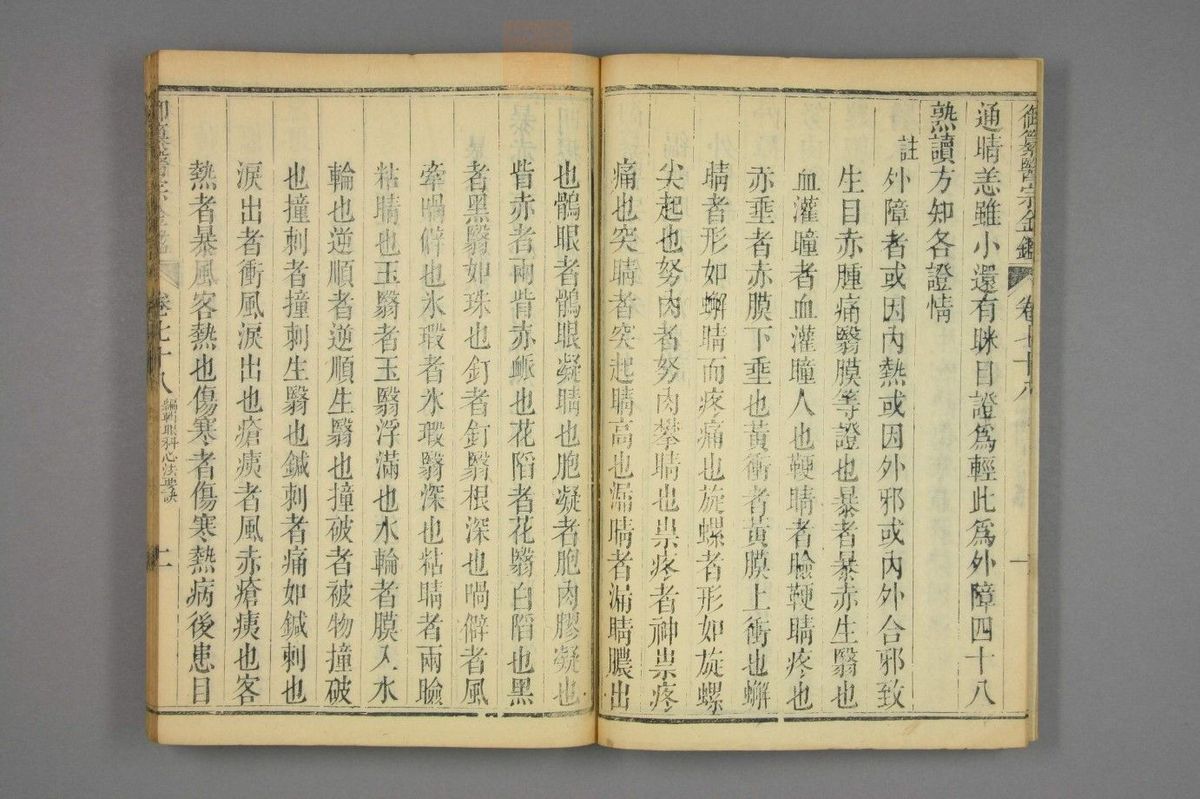 御纂醫宗金鑑 卷七十八 一
通睛恙雖小還有眯目證爲輕此爲外障四十八
熟讀方知各證情
註
外障者或因內熱或因外邪或內外合邪致
生目赤腫痛翳膜等證也暴者暴赤生翳也
血灌瞳者血灌瞳人也鞕睛者瞼鞕睛疼也
赤垂者赤膜下垂也黃衝者黃膜上衝也蠏
睛者形如蠏睛而疼痛也旋螺者形如旋螺
尖起也努肉者努肉攀睛也祟疼者神祟疼
痛也突睛者突起睛高也漏睛者漏睛膿出
也鶻眼者鶻眼凝睛也胞凝者胞肉膠凝也
眥赤者兩眥赤脈也花䧟者花翳白䧟也黑
者黑翳如珠也釘者釘翳根深也喎僻者風
牽喎僻也氷瑕者氷瑕翳深也粘睛者兩瞼
粘睛也玉翳者玉翳浮滿也水輪者膜入水
輪也逆順者逆順生翳也撞破者被物撞破
也撞刺者撞刺生翳也鍼刺者痛如鍼刺也
淚出者衝風淚出也瘡痍者風赤瘡痍也客
熱者暴風客熱也傷寒者傷寒熱病後患目
御纂醫宗金鑑 卷七十八 編輯眼科心法要訣 二